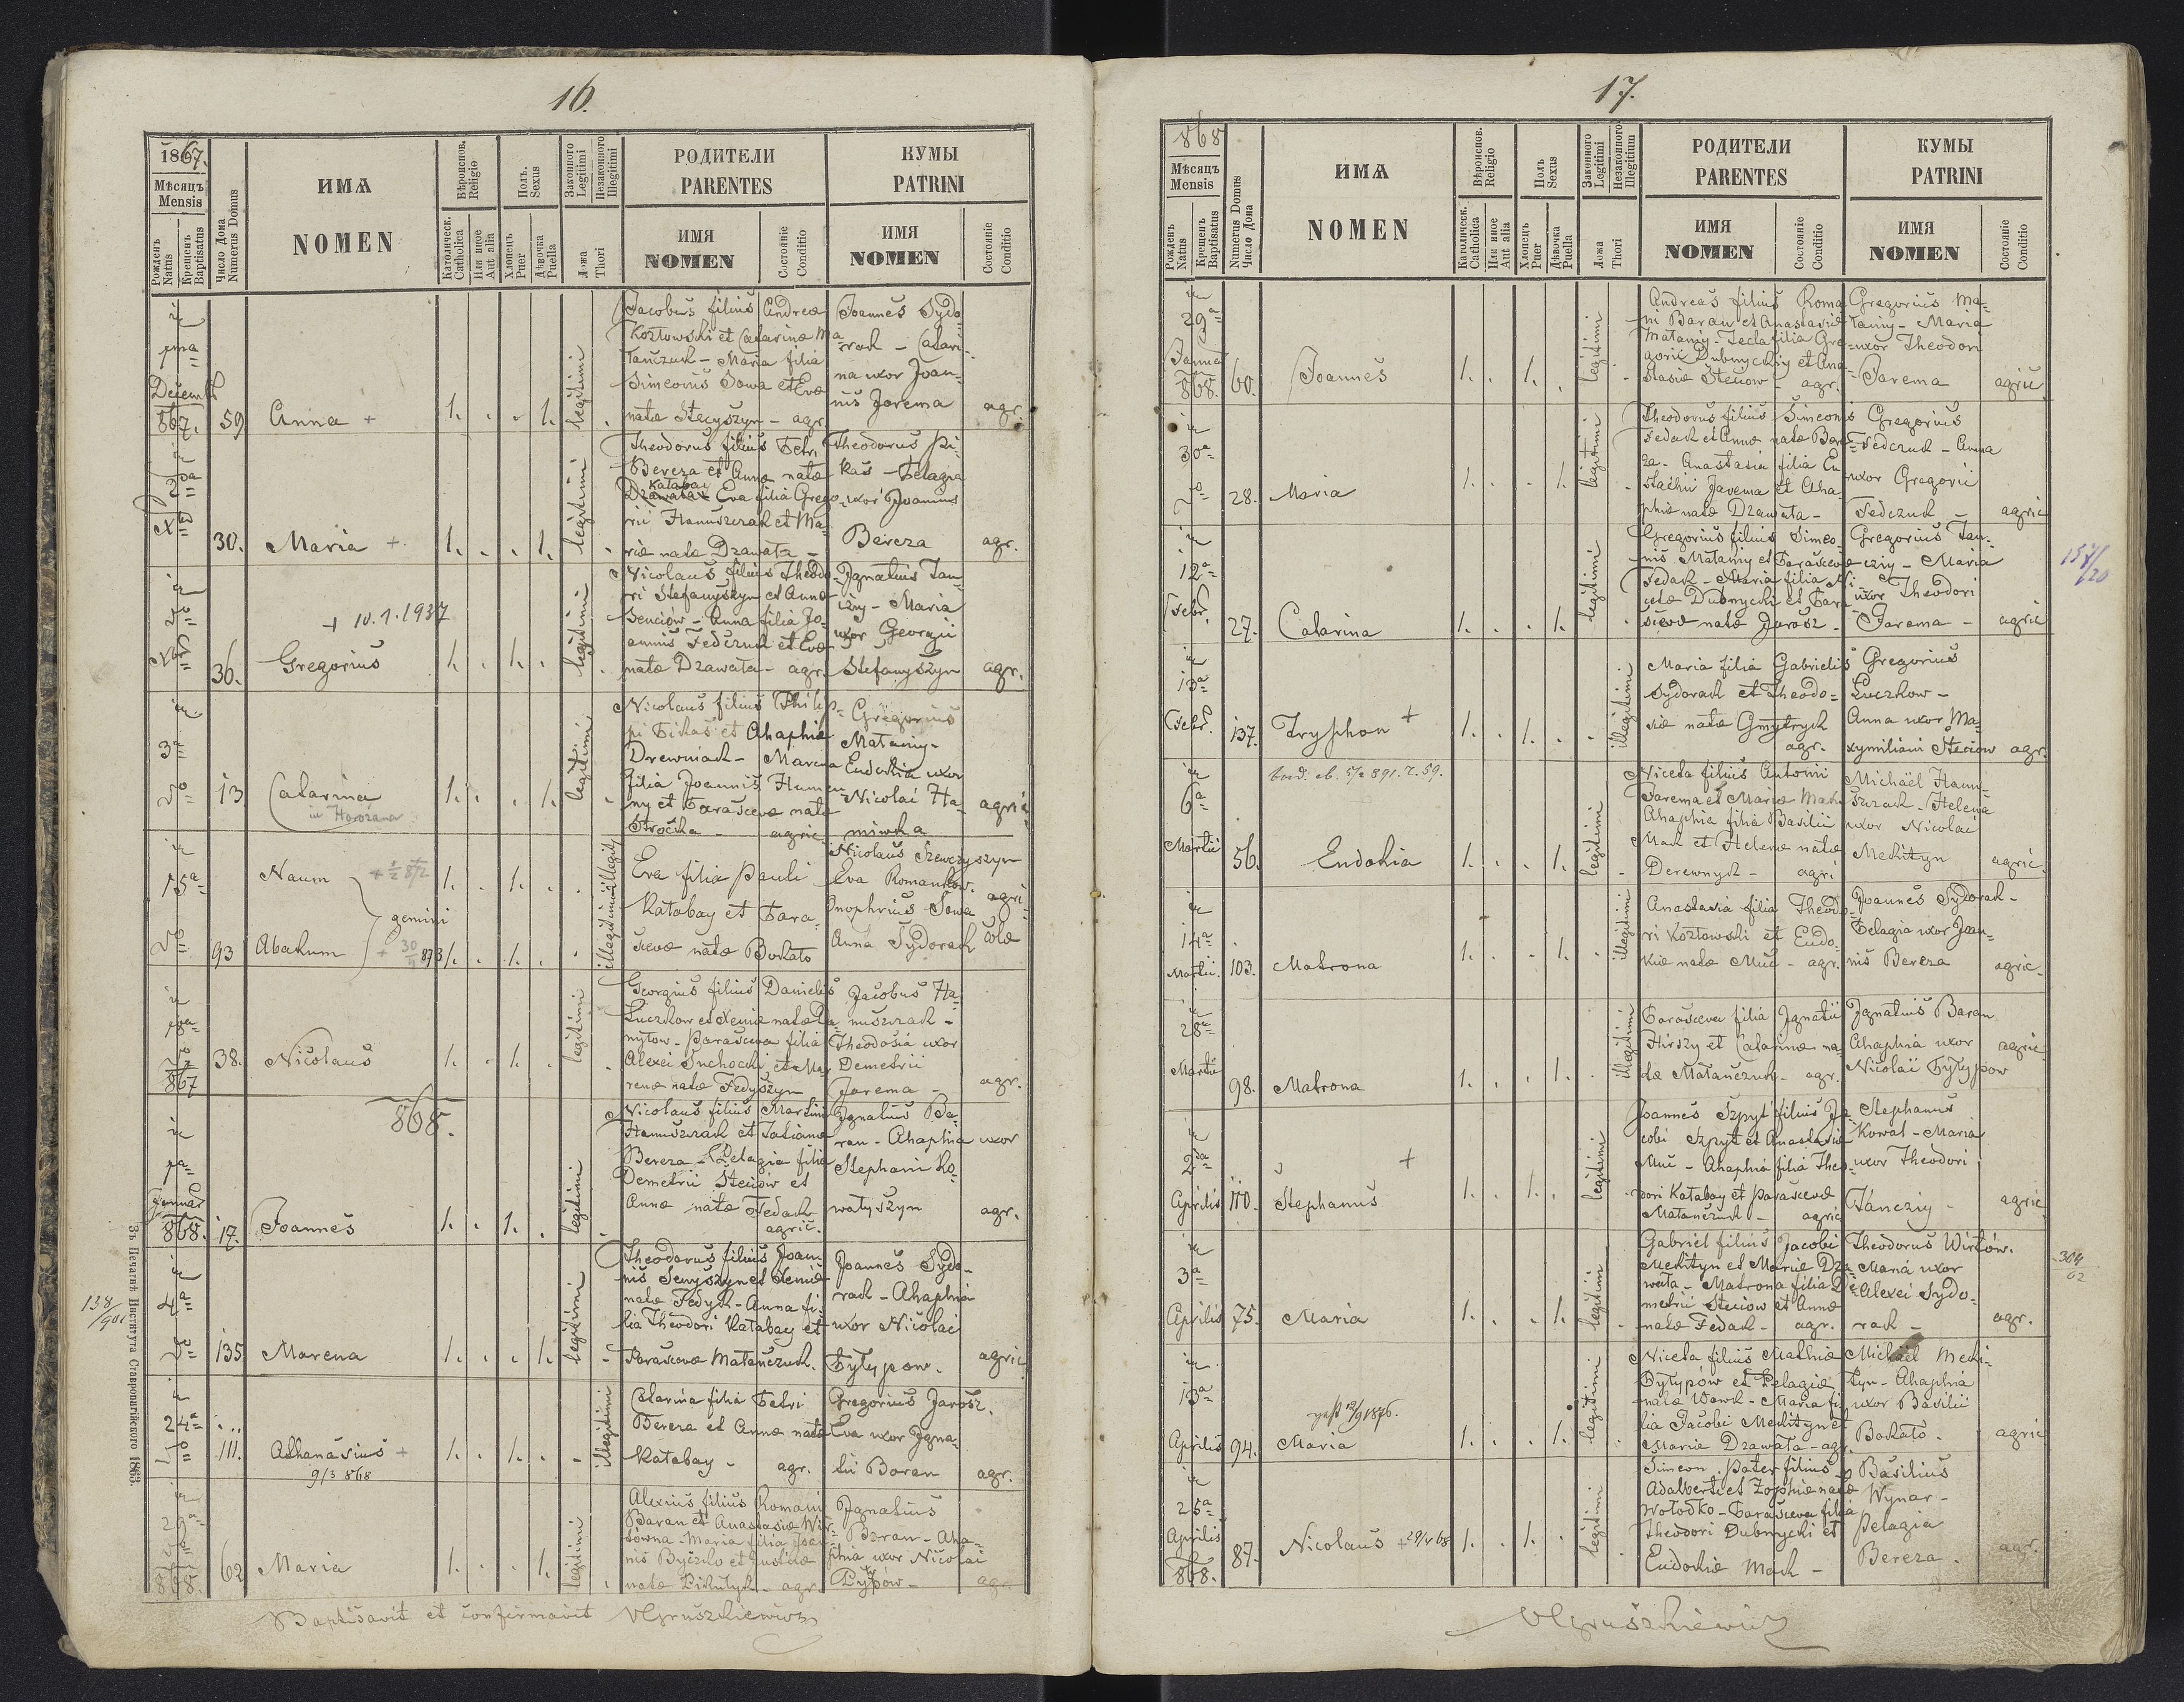 16.
1867.
Мѣсяцъ
Mensis
Рожденъ
Natus
Крещенъ
Baptisatus
Число Дома
Numerus Domus
ИМѦ
NOMEN
Вѣроиспов.
Religio
Католическ.
Catholica
Или иное
Aut alia
Полъ.
Sexus
Хлопецъ
Puer
Дѣвочка
Puella
Законного
Legitimi
Незаконного
Illegitimi
Ложа
Thori
РОДИТЕЛИ
PARENTES
ИМЯ
NOMEN
Состояніе
Conditio
КУМЫ
PATRINI
ИМЯ
NOMEN
Состояніе
Conditio
ia
1ma
Decemb
867.
59
Anna +
1. . . 1.
legitimi
Jacobus filius Andreæ
Kozłowski et Catarinæ Ma
tańczuk - Maria filia
Simeonis Sowa et Evæ
natæ Stecyszyn - agr.
Joannes Sydo-
rak - Catari-
na uxor Joan-
nis Jarema
agr.
30.
Maria +
1. . . 1.
legitimi
Theodorus filius Petri
Bereza et Annæ natæ
Katabay
Dzawata - Eva filia Grego-
rii Hanuszczak et Ma-
riæ natæ Dzawata -
Theodorus Pi-
kas - Pelagia
uxor Joannis
Bereza
agr.
+ 10.1.1937
36.
Gregorius
1. . 1. .
legitimi
Nicolaus filius Theodo-
ri Stefanyszyn et Annæ
Senciów - Anna filia Jo-
annis Fedczuk et Evæ
natæ Dzawata - agr.
Ignatius Tan-
czny - Maria
uxor Georgii
Stefanyszyn
agr.
3a
13
Catarina
in Horożana
1. . . 1.
legitimi
Nicolaus filius Philip-
pi Pikas et Ahaphiæ
Drewniak - Marena
filia Joannis Humen-
ny et Parascevæ natæ
Stročka - agric.
Gregorius
Matainy -
Eudokia uxor
Nicolai Ha-
miwka
agric
15a
93
Naum
Abakum
gemini
+ 30/4 873
1. . 1. .
1. . 1. .
illegitimi illegit.
Eva filia Pauli
Katabay et Para-
scevæ natæ Bokato
Nicolaus Szewczyszyn
Eva Romankow.
Onophrius Sowa
Anna Sydorak
agri-
colæ
867
38.
Nicolaus
1. . 1. .
legitimi
Georgius filius Danielis
Łuczkow et Xeniæ natæ Da-
nyłow - Parasceva filia
Alexei Suchocki et Ma-
renæ natæ Fedyszyn
Jacobus Ha-
nuszczak -
Theodosia uxor
Demetrii
Jarema -
agr.
868.
Januar
868.
17.
Joannes
1. . 1. .
legitimi
Nicolaus filius Martini
Hanuszczak et Tatianæ
Bereza - Pelagia filia
Demetrii Steciow et
Annæ natæ Fedak
agric.
Ignatius Ba-
ran - Ahaphia uxor
Stephani Ko-
watyszyn
agr.
138/901
4a
135
Marena
1. . . 1.
legitimi
Theodorus filius Joan-
nis Senyszyn et Xeniæ
natæ Fedyk - Anna fi-
lia Theodori Katabay et
Parascevæ Matańczuk.
Joannes Sydo-
rak - Ahaphia
uxor Nicolai
Pyłypow.
agric
24a
111.
Athanasius +
9/3 868
1. . 1. .
illegitimi
Catarina filia Petri
Bereza et Annæ natæ
Katabay - agr.
Gregorius Jarosz.
Eva uxor Igna-
tii Baran
agr.
29a
868.
62
Maria
1. . . 1.
legitimi
Alexius filius Romani
Baran et Anastasiæ Wir-
tówna - Maria filia Joan-
nis Byczko et Justinæ
natæ Pikulyk - agr.
Ignatius
Baran - Aha-
phia uxor Nicolai
Pyłypów -
agr.
Baptisavit et confirmavit VGruszkiewicz
Зъ Печатнѣ Института Ставропигійского 1863.
17.
868
Мѣсяцъ
Mensis
Рожденъ
Natus
Крещенъ
Baptisatus
Numerus Domus
Число Дома
ИМѦ
NOMEN
Вѣроиспов.
Religio
Католическ.
Catholica
Или иное
Aut alia
Полъ
Sexus
Хлопецъ
Puer
Дѣвочка
Puella
Законного
Legitimi
Незаконного
Illegitimum
Ложа
Thori
РОДИТЕЛИ
PARENTES
ИМЯ
NOMEN
Состояніе
Conditio
КУМЫ
PATRINI
ИМЯ
NOMEN
Состояніе
Conditio
29a
Januar
868.
60.
Joannes
1. . 1. .
legitimi
Andreas filius Roma-
ni Baran et Anastasiæ
Matainy - Tecla filia Gre-
gorii Dubnycky et Ana-
stasiæ Steciow - agr.
Gregorius Ma-
tainy - Maria
uxor Theodori
Jarema
agric
30a
28.
Maria
1. . . 1.
legitimi
Theodorus filius Simeonis
Fedak et Annæ natæ Bere-
za - Anastasia filia Eu-
stachii Jarema et Aha-
phiæ natæ Dzawata -
Gregorius
Fedczuk - Anna
uxor Gregorii
Fedczuk -
agric
12a
Febr.
27.
Catarina
1. . . 1.
legitimi
Gregorius filius Simeo-
nis Matainy et Parascevæ
Fedak - Maria filia Ni-
cetæ Dubnycki et Para-
scevæ natæ Jarosz -
Gregorius Tan-
czny - Maria
uxor Theodori
Jarema -
agric
157/20
13a
Febr.
137.
Tryphon +
1. . 1. .
illegitimi
Maria filia Gabrielis
Sydorak et Theodo-
siæ natæ Gmytryk
agr.
Gregorius
Łuczkow -
Anna uxor Ma-
xymiliani Steciow agr.
6a
Martii
56.
Eudokia
1. . . 1.
legitimi
Niceta filius Antonii
Jarema et Mariæ Mak
Ahaphia filia Basilii
Mak et Helenæ natæ
Derewnyk - agri
Michaël Hanu-
szczak - Helena
uxor Nicolai
Mekityn
agric.
14a
Martii.
103.
Matrona
1. . . 1.
illegitimi
Anastasia filia Theodo-
ri Kozłowski et Eudo-
kiæ natæ Muc - agr.
Joannes Sydorak -
Pelagia uxor Joan-
nis Bereza
agric.
28a
Martii
98.
Matrona
1. . . 1.
illegitimi
Parasceva filia Ignatii
Hirszy et Catarinæ na-
tæ Matańczuk - agr.
Ignatius Baran
Ahaphia uxor
Nicolai Pyłypow
agric
2da
Aprilis
110.
Stephanus
+
1. . 1. .
legitimi
Joannes Szpyt filius Ja-
cobi Szpyt et Anastasiæ
Muc - Ahaphia filia Theo-
dori Katabay et Parascevæ
Matańczuk - agric
Stephanus
Kowal - Maria
uxor Theodori
Tanczny -
agric
3a
Aprilis
75.
Maria
1. . . 1.
legitimi
Gabriel filius Jacobi
Mekityn et Mariæ Dza-
wata - Matrona filia De-
metrii Steciow et Annæ
natæ Fedak - agr.
Theodorus Wirtów.
Maria uxor
Alexei Sydo-
rak -
agr.
304/02
13a
Aprilis
94.
Maria
1. . . 1.
legitimi
Niceta filius Mathiæ
Pyłypów et Pelagiæ
natæ Wowk - Maria fi-
lia Jacobi Mekityn et
Mariæ Dzawata - agr.
Michaël Meki-
tyn - Ahaphia
uxor Basilii
Bokato.
agric
25a
Aprilis
868.
87.
Nicolaus + 29/4 68
1. . 1. .
legitimi
Simeon Pater filius
Adalberti et Zophiæ natæ
Wołodko - Parasceva filia
Theodori Dubnycki et
Eudokiæ Mak -
Basilius
Wynar -
Pelagia
Bereza.
agr.
VGruszkiewicz